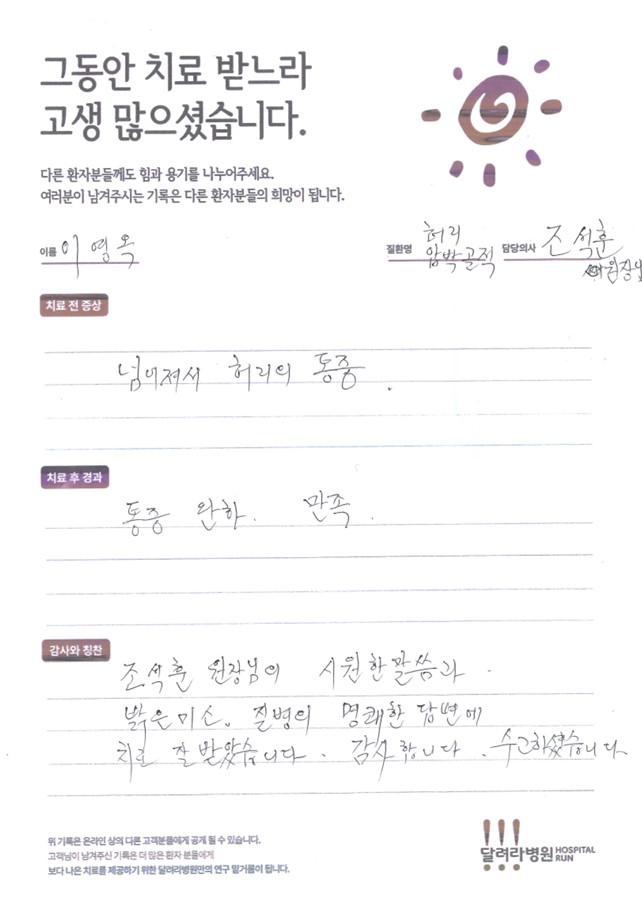 그동안 치료 받느라
고생 많으셨습니다.
다른 환자분들께도 힘과 용기를 나누어주세요.
여러분이 남겨주시는 기록은 다른 환자분들의 희망이 됩니다.
이름 이영옥 질환명 허리 압박골절 담당의사 조석훈 원장님
치료 전 증상
넘어져서 허리의 통증.
치료 후 경과
통증 완화. 만족.
감사와 칭찬
조석훈 원장님의 시원한 말씀과.
밝은 미소. 질병의 명쾌한 답변에
치료 잘 받았습니다. 감사합니다. 수고하셨습니다.
위 기록은 온라인 상의 다른 고객분들에게 공개 될 수 있습니다.
고객님이 남겨주신 기록은 더 많은 환자 분들에게
보다 나은 치료를 제공하기 위한 달려라병원만의 연구 밑거름이 됩니다.
달려라병원 HOSPITAL RUN